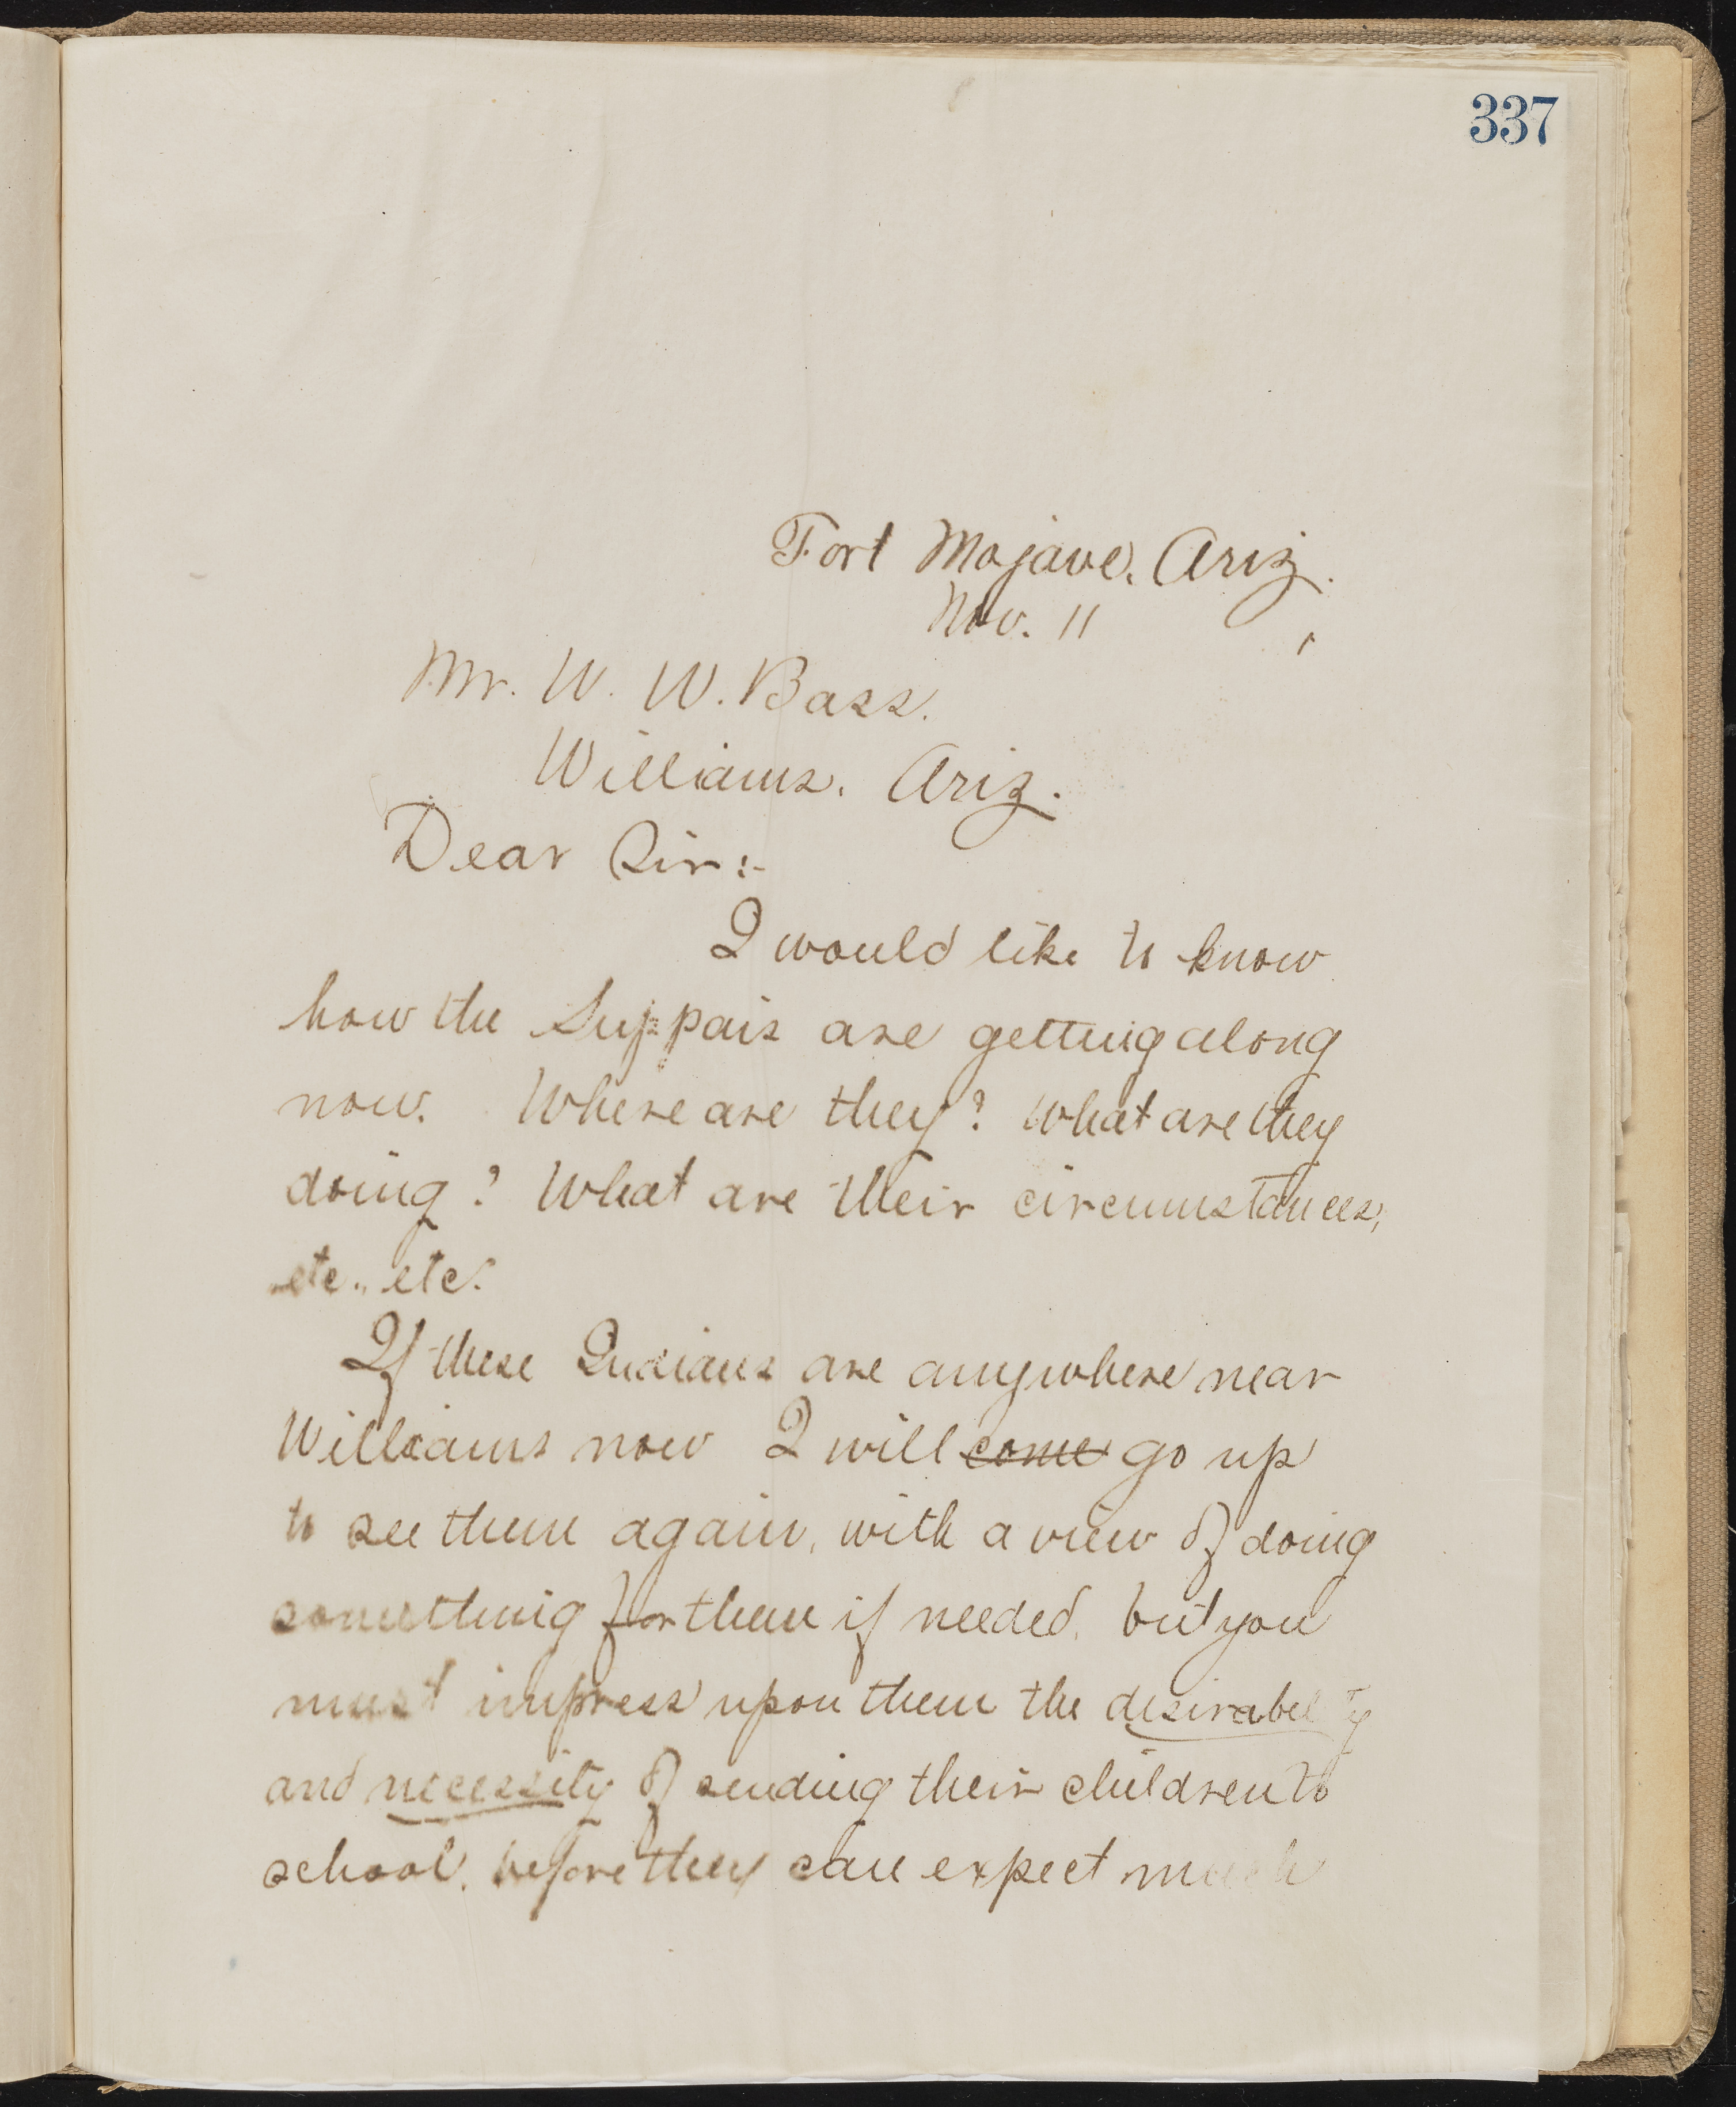 337
Fort Mojave, Ariz.
Nov. 11
Mr. W. W. Bass.
Williams, Ariz.
Dear Sir:-
I would like to know
how the Suppais are getting along
now. Where are they? What are they
doing? What are their circumstances,
etc., etc.
If these Indians are anywhere near
Williams now I will come go up
to see them again, with a view of doing
something for them if needed, but you
must impress upon them the desirability
and necessity of sending their children to
school, before they can expect much